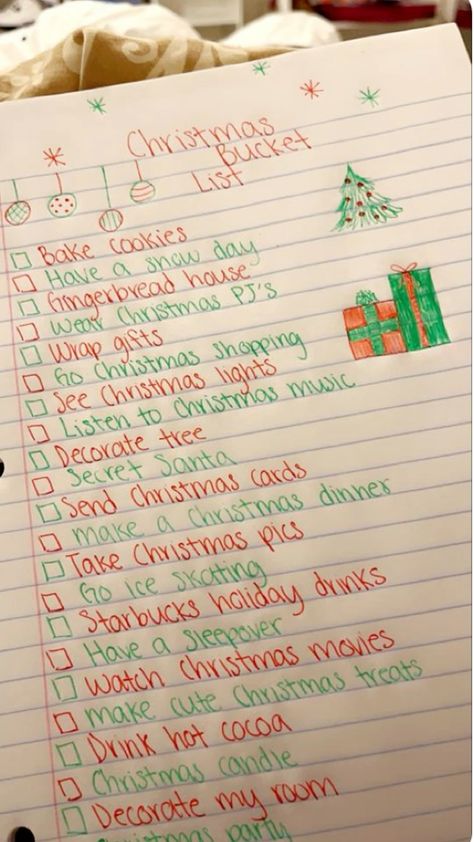 Christmas
Bucket
List
Bake cookies
Have a snow day
Gingerbread house
wear Christmas PJ's
Wrap gifts
Go Christmas shopping
See Christmas lights
Listen to Christmas music
Decorate tree
Secret Santa
Send Christmas cards
make a Christmas dinner
Take Christmas pics
Go ice skating
Starbucks holiday drinks
Have a sleepover
Watch Christmas movies
make cute Christmas treats
Drink hot cocoa
Christmas candle
Decorate my room
Christmas party